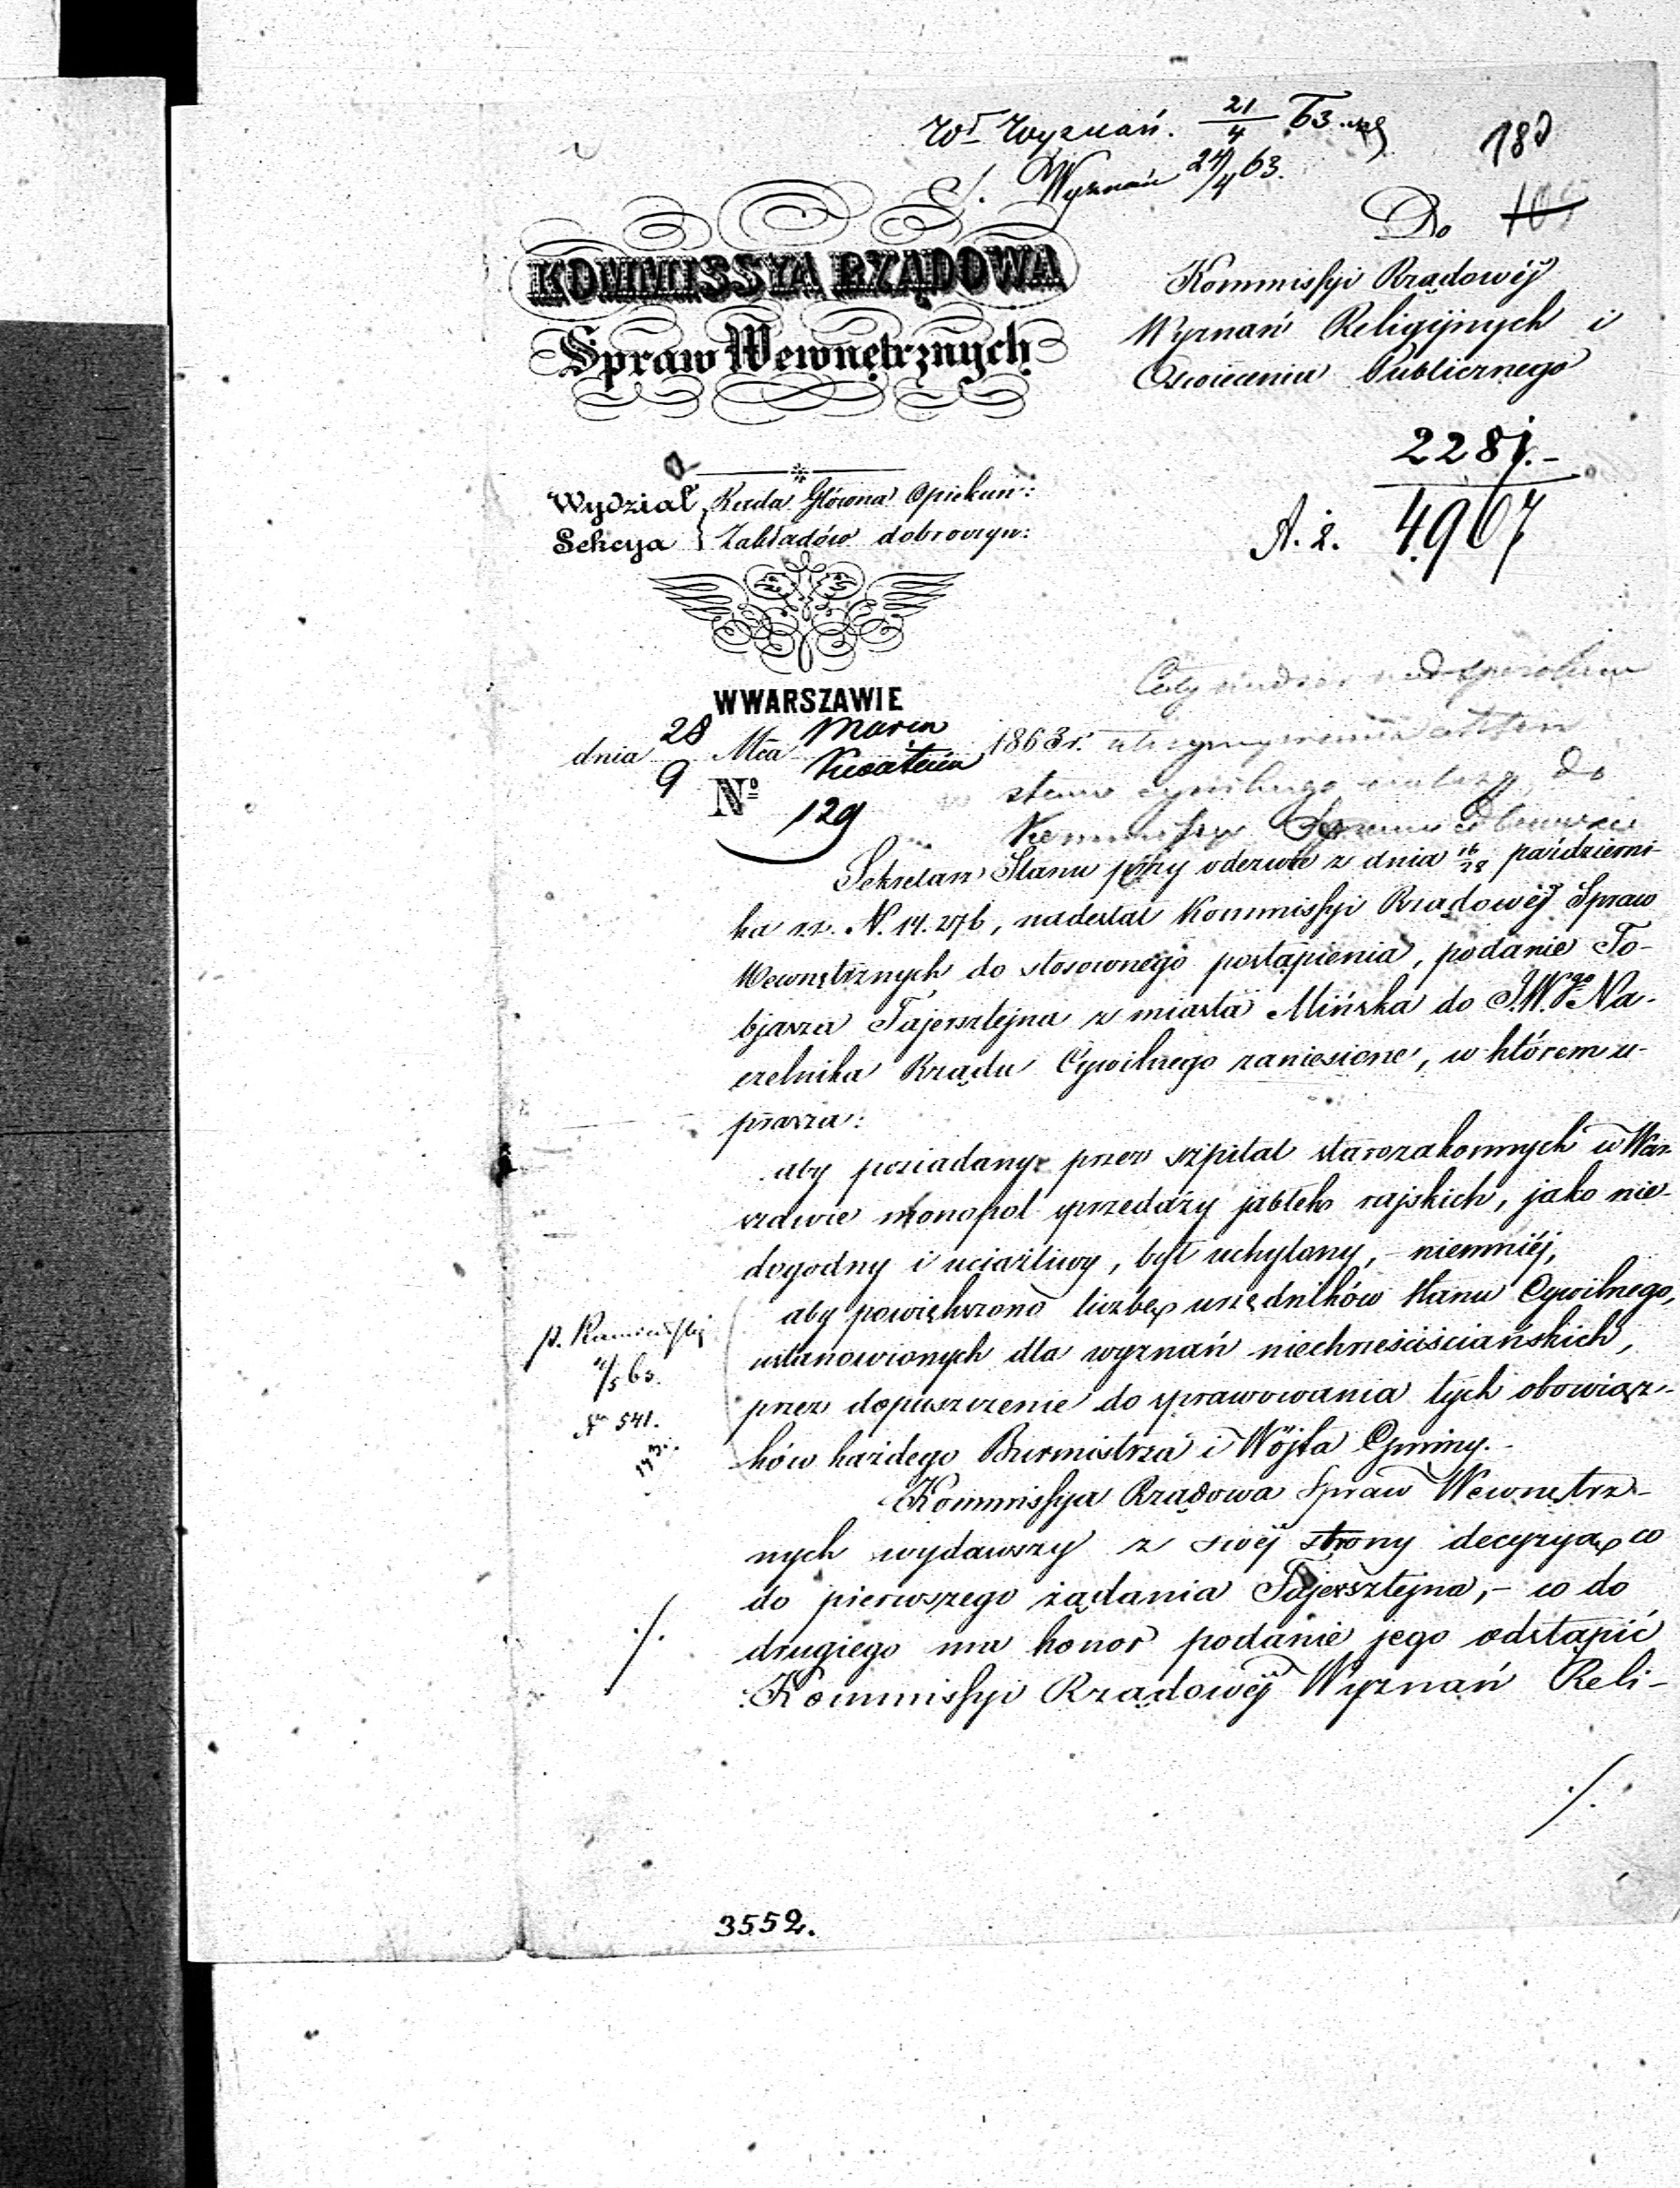 Wł Wyznań. 21/4 63.
S. Wyznań 24/4 63.
180
Do
KOMMISSYA RZĄDOWA
Spraw Wewnętrznych
Kommissyi Rządowéj
Wyznań Religijnych i
Oświecenia Publicznego
2281.-
A. 2. 4967
Wydział Rada Główna Opiekuń:
Sekcya Zakładów dobroczyn:
W WARSZAWIE
dnia 28/9 Mca Marca/Kwietnia 1863 r.
Cały nad
utrzymywania Aktów
stanu cywilnego należy do
Kommissyi
No 129
Sekretarz Stanu przy odezwie z dnia 16/28 październi-
ka r.z. N. 14.276, nadesłał Kommissyi Rządowéj Spraw
Wewnętrznych do stosownego postąpienia, podanie To-
bjasza Fajersztejna z miasta Mińska do J.W.go Na-
czelnika Rządu Cywilnego zaniesione, w którem u-
prasza:
aby posiadany przez szpital starozakonnych w War-
szawie monopol sprzedaży jabłek rajskich, jako nie-
dogodny i uciążliwy, był uchylony, - niemniéj,
aby powiększono liczbę urzędników Stanu Cywilnego,
ustanowionych dla wyznań niechrześciściańskich,
przez dopuszczenie do sprawowania tych obowiąz-
ków każdego Burmistrza i Wójta Gminy.-
p.
/5 63.
No 541.
Kommissya Rządowa Spraw Wewnętrz-
nych wydawszy z swéj strony decyzyą co
do pierwszego żądania Fajersztejna, - co do
drugiego ma honor podanie jego odstąpić
Kommissyi Rządowéj Wyznań Reli-
./.
./.
3552.